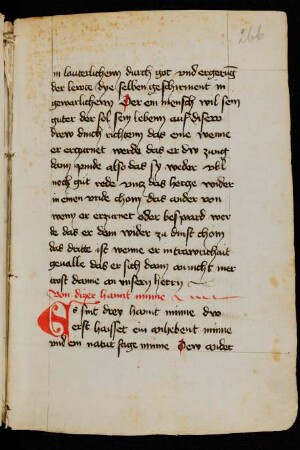 266
in lauterlichem durch got vnd ergerung
der lewte dye selben geschirment in
gewarlichem Der ein mensch wil sein
guter der sol sein lebem auf disew
drew dinch richtem das eine wenne
er erczurnet werde das er dw zung
dam pinde also das sy weder vbl
noch gut rede vncz das hercze wider
in einem vride chom das ander von
wem er erczurnet oder besward wer
de das er dem wider zu dinst chom
das dritte ist wenne er in traurichait
geualle das er sich dann an nicht mer
trost danne an vnserm herrn
von dryer hannt minne
Es sint drey hannt minne dw
erst haisset ein anhebent minne
vnd ein natur minne Dew ander